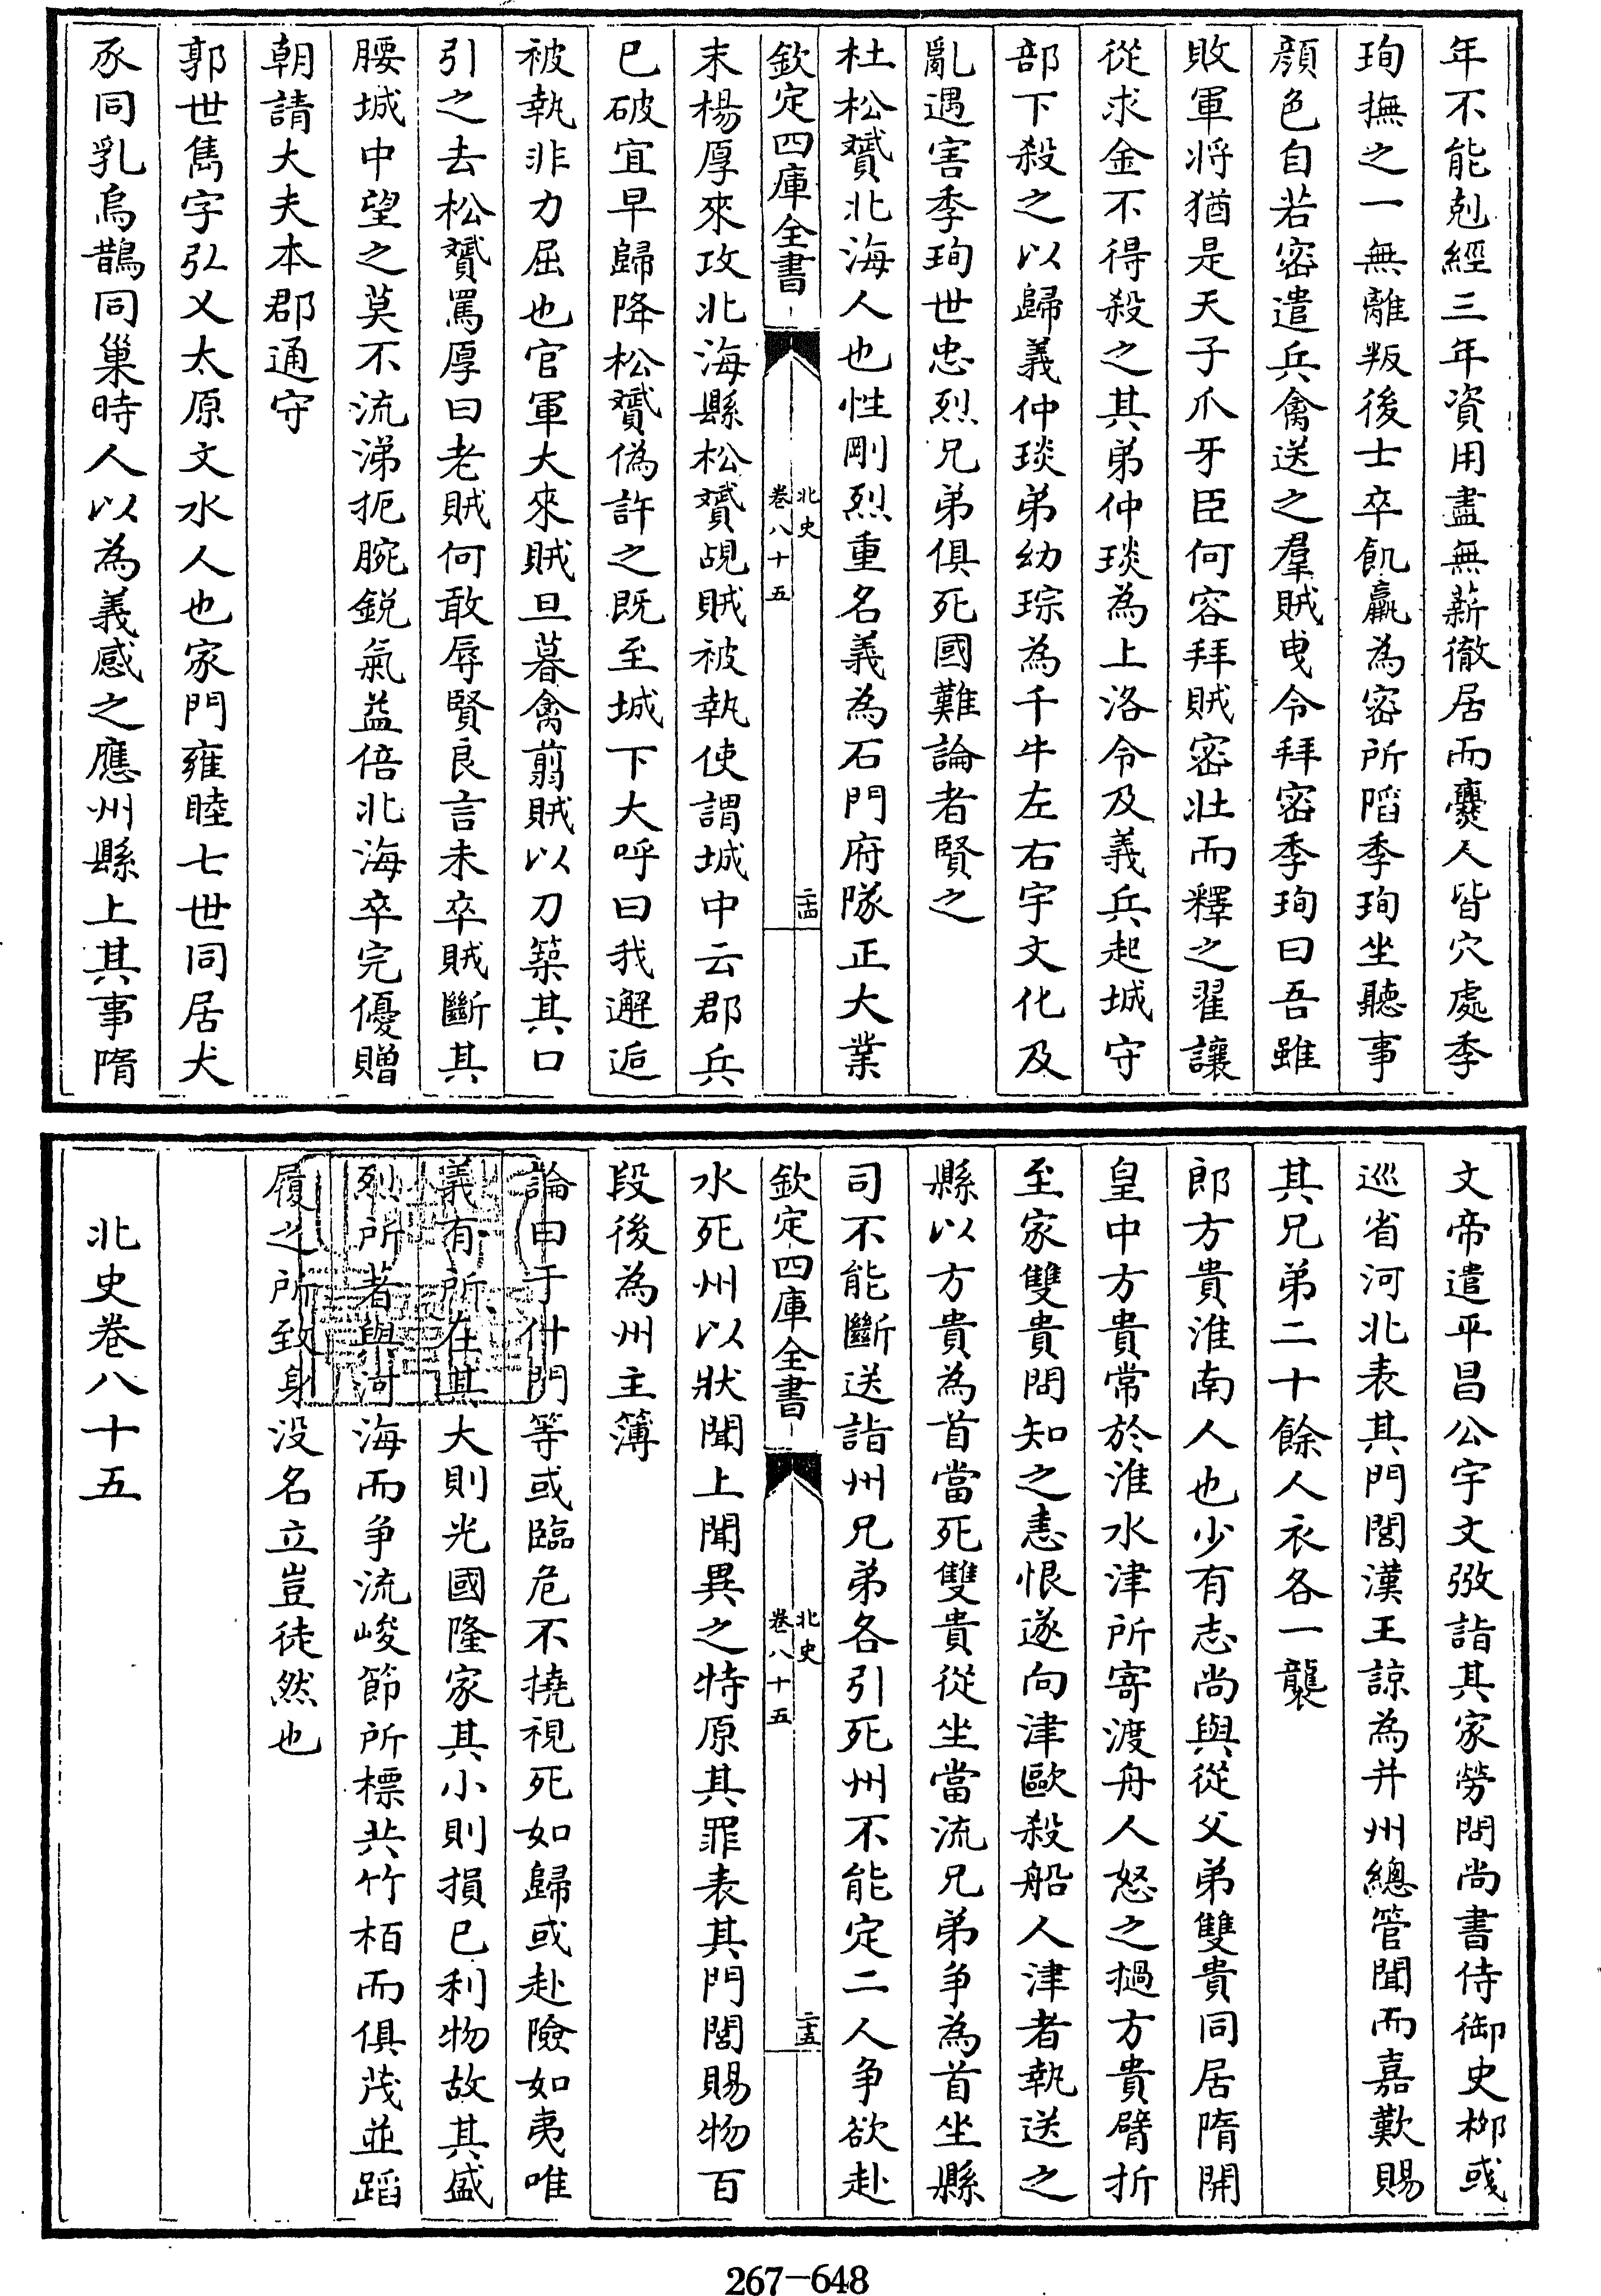 年不能剋經三年資用盡無薪徹居而爨人皆穴處季
珣撫之一無離叛後士卒飢羸為密所䧟季珣坐聽事
顔色自若密遣兵禽送之羣賊曵令拜密季珣曰吾雖
敗軍将猶是天子爪牙臣何容拜賊密壯而釋之翟讓
從求金不得殺之其弟仲琰為上洛令及義兵起城守
部下殺之以歸義仲琰弟幼琮為千牛左右宇文化及
亂遇害季珣世忠烈兄弟俱死國難論者賢之
杜松贇北海人也性剛烈重名義為石門府隊正大業
欽定四庫全書
北史
卷八十五
二十四
末楊厚來攻北海縣松贇覘賊被執使謂城中云郡兵
已破宜早歸降松贇偽許之既至城下大呼曰我邂逅
被執非力屈也官軍大來賊旦暮禽翦賊以刀築其口
引之去松贇罵厚曰老賊何敢辱賢良言未卒賊斷其
腰城中望之莫不流涕扼腕鋭氣益倍北海卒完優贈
朝請大夫本郡通守
郭世儁字弘乂太原文水人也家門雍睦七世同居犬
豕同乳烏鵲同巢時人以為義感之應州縣上其事隋
文帝遣平昌公宇文㢸詣其家勞問尚書侍御史柳彧
巡省河北表其門閭漢王諒為并州總管聞而嘉歎賜
其兄弟二十餘人衣各一襲
郎方貴淮南人也少有志尚與從父弟雙貴同居隋開
皇中方貴常於淮水津所寄渡舟人怒之撾方貴臂折
至家雙貴問知之恚恨遂向津毆殺船人津者執送之
縣以方貴為首當死雙貴從坐當流兄弟争為首坐縣
司不能斷送詣州兄弟各引死州不能定二人争欲赴
欽定四庫全書
北史
卷八十五
二十五
水死州以狀聞上聞異之特原其罪表其門閭賜物百
段後為州主簿
論曰于什門等或臨危不撓視死如歸或赴險如夷唯
義有所在其大則光國隆家其小則損已利物故其盛
烈所著與河海而争流峻節所標共竹栢而俱茂並蹈
履之所致身没名立豈徒然也
北史卷八十五
267-648